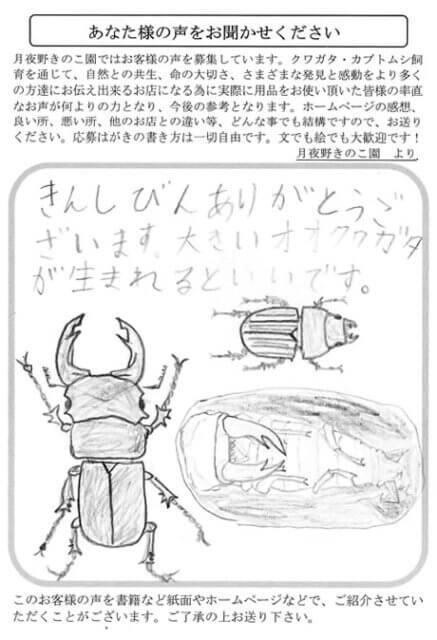 あなた様の声をお聞かせください
月夜野きのこ園ではお客様の声を募集しています。クワガタ・カブトムシ飼
育を通じて、自然との共生、命の大切さ、さまざまな発見と感動をより多く
の方達にお伝え出来るお店になる為に実際に用品をお使い頂いた皆様の率直
なお声が何よりの力となり、今後の参考となります。ホームページの感想、
良い所、悪い所、他のお店との違い等、どんな事でも結構ですので、お送り
ください。応募はがきの書き方は一切自由です。文でも絵でも大歓迎です！
月夜野きのこ園　より
きんしびんありがとうご
ざいます。大きいオオクワガタ
が生まれるといいです。
このお客様の声を書籍など紙面やホームページなどで、ご紹介させてい
ただくことがございます。ご了承の上お送り下さい。